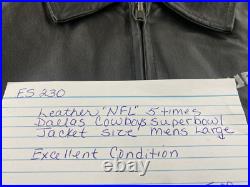 FS 230
Leather "NFL" 5 times
Dallas Cowboys Superbowl
Jacket Size mens Large
Excellent Condition